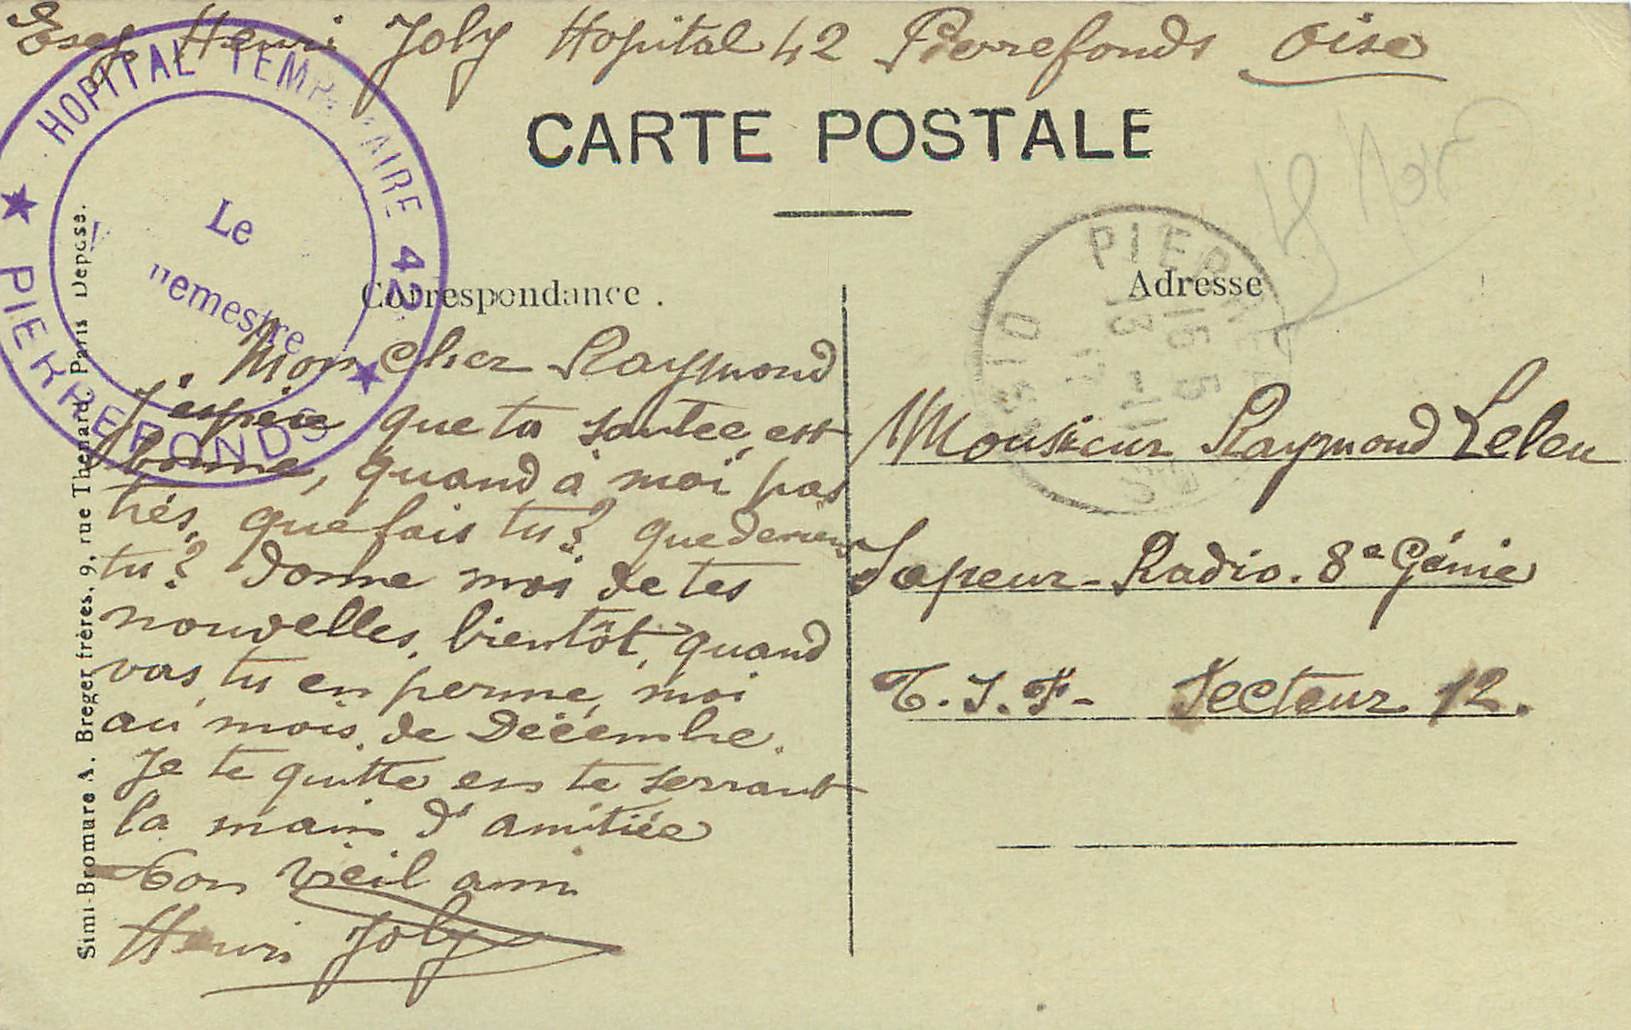 Henri Joly Hopital 42 Pierrefonds Oise
CARTE POSTALE
HOPITAL TEMPORAIRE 42
PIERREFONDS
Le
Correspondance.
Adresse
Mon Cher Raymond
J'espère que ta santée, est
bonne, quand à moi pas
très, que fais tu? que deviens
tu? Donne moi de tes
nouvelles, bientôt, quand
vas tu en perme, moi
au mois de Décembre.
Je te quitte en te serrant
la main d'amitiée
Ton vieil ami
Henri Joly
Monsieur Raymond Leleu
Sapeur-Radio. 8e Génie
T.S.F- Secteur 12.
Simi-Bromure A. Breger frères, 9, rue Thénard, Paris Déposé.